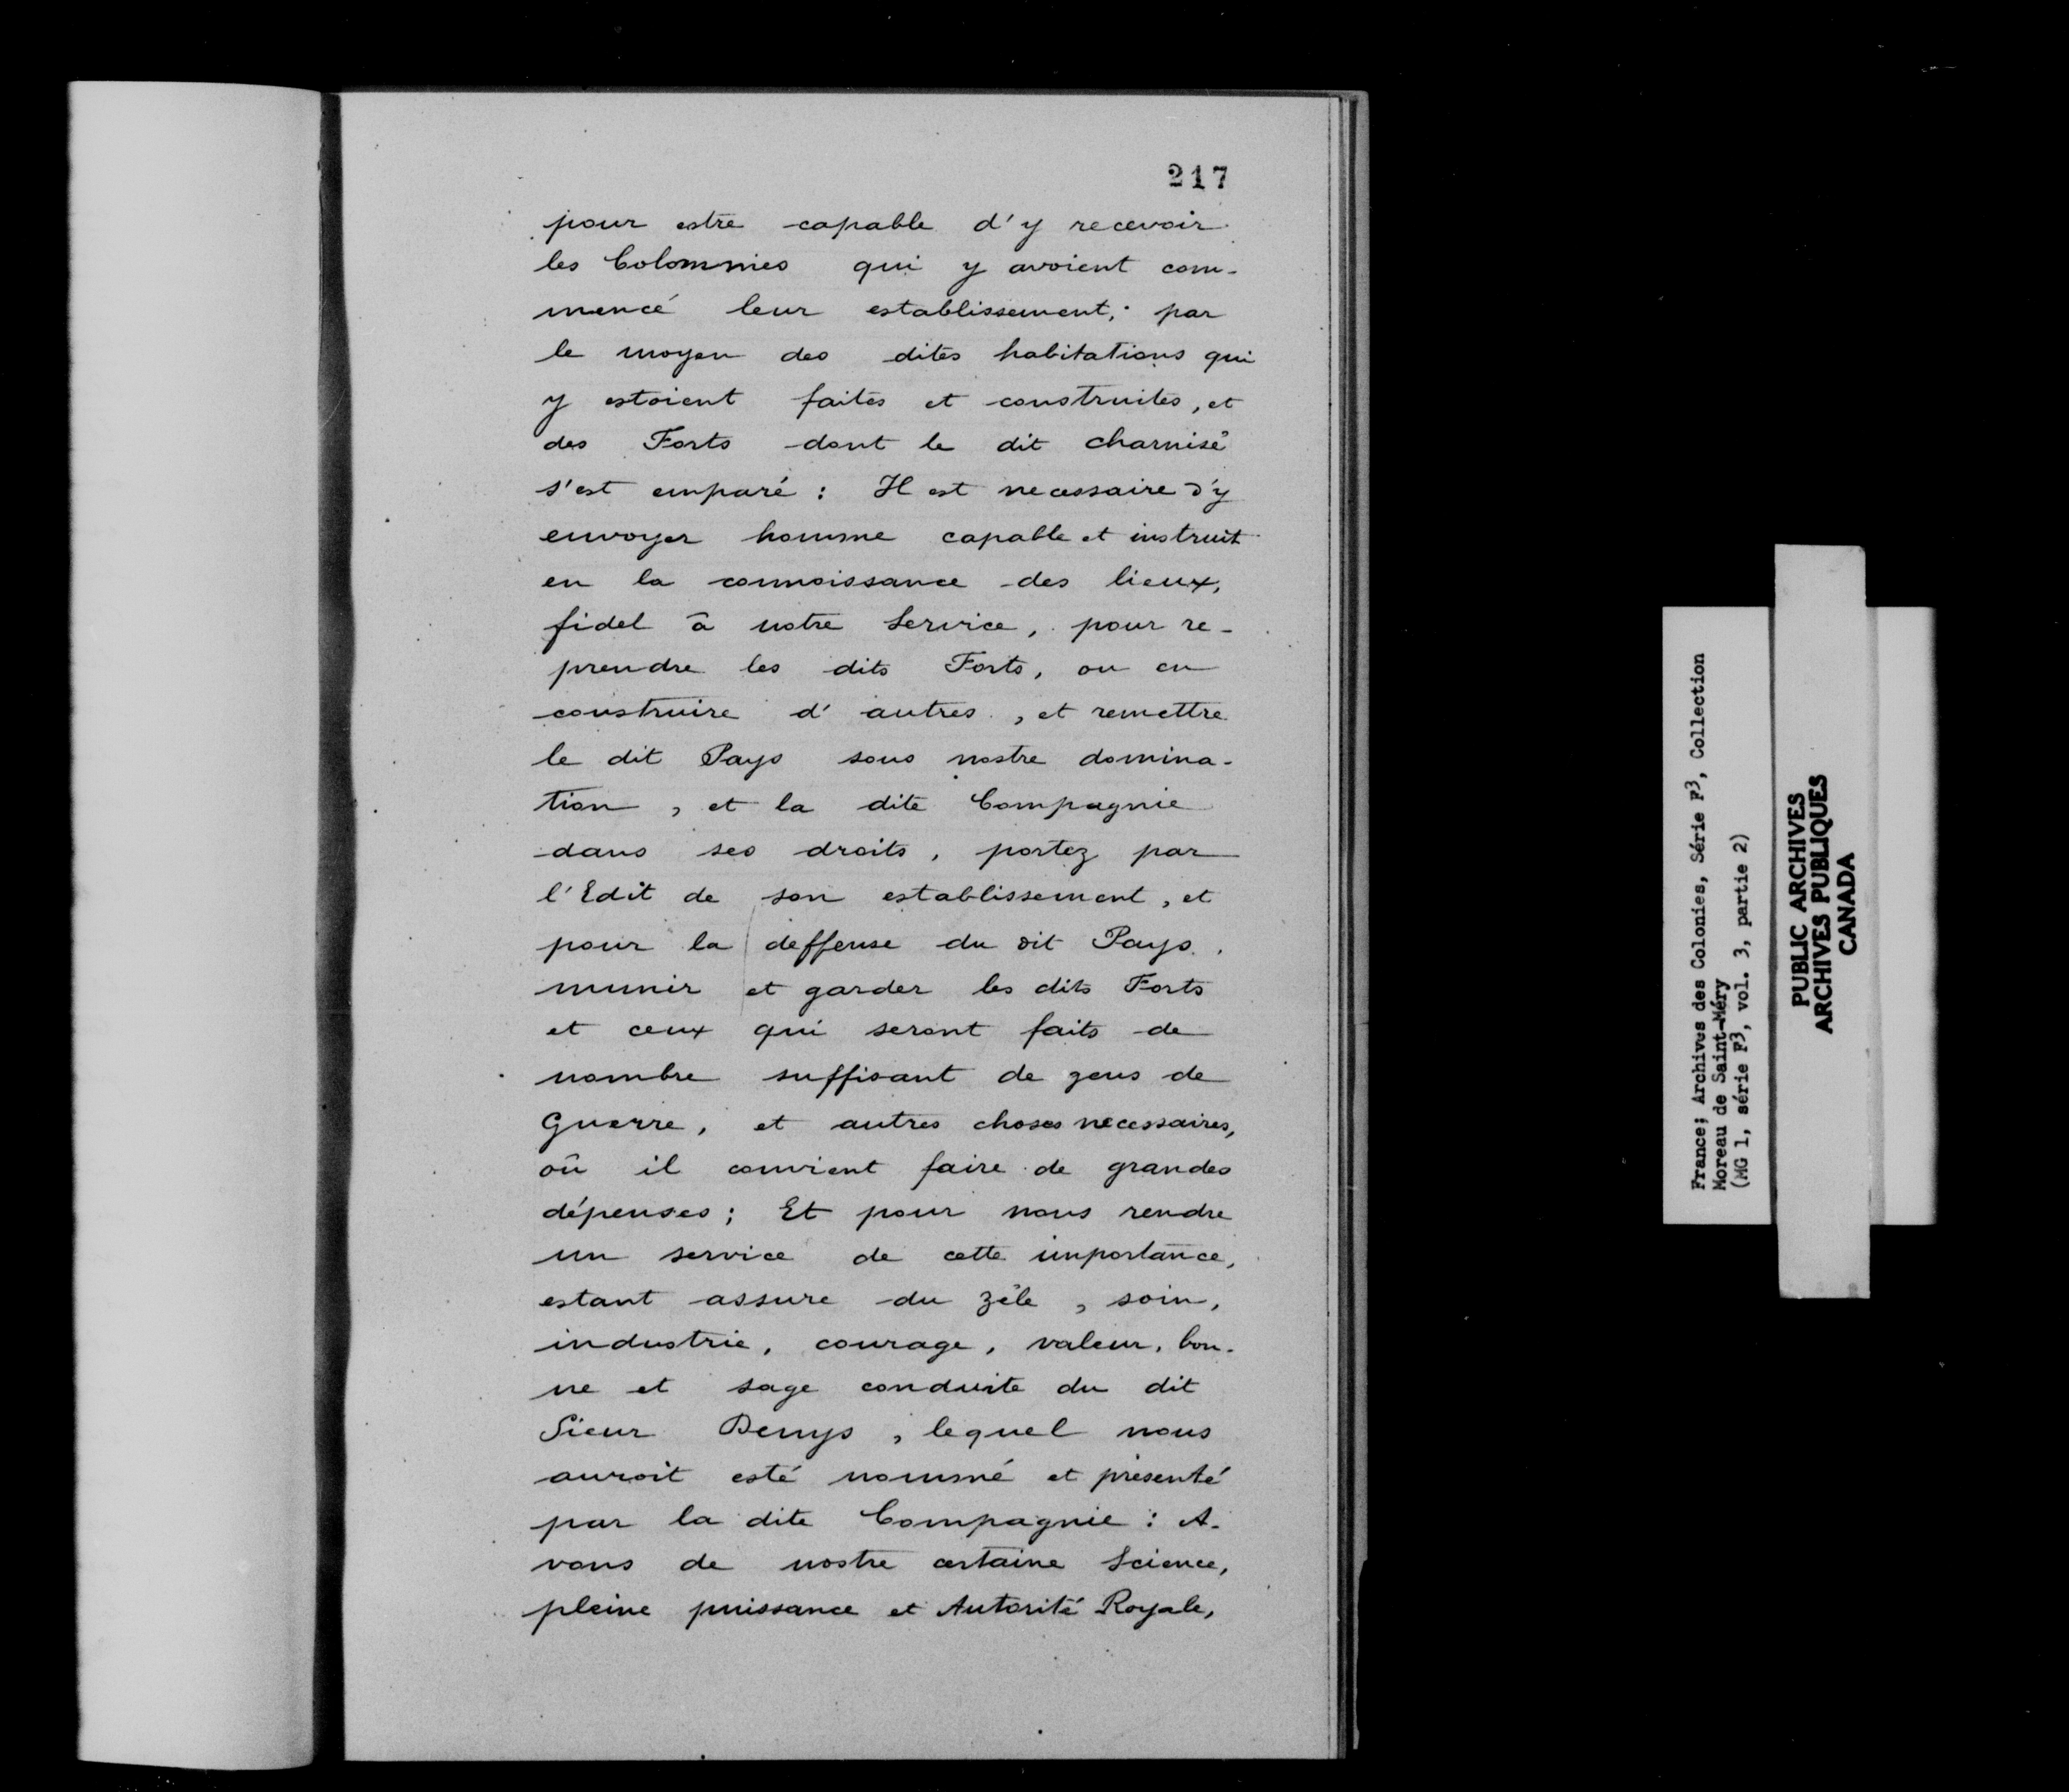 217
pour estre capable d'y recevoir
les Colommies qui y avoient com-
mencé leur establissement; par
le moyen des dites habitations qui
y estoient faites et construites, et
des Forts dont le dit Charnisé
s'est emparé : Il est necessaire d'y
envoyer homme capable et instruit
en la connoissance des lieux,
fidel à notre Service, pour re-
prendre les dits Forts, ou en
construire d'autres, et remettre
le dit Pays sous nostre domina-
tion, et la dite Compagnie
dans ses droits, portez par
l'Edit de son establissement, et
pour la deffense du dit Pays,
munir et garder les dits Forts
et ceux qui seront faits de
nombre suffisant de gens de
Guerre, et autres choses necessaires,
où il convient faire de grandes
dépenses; Et pour nous rendre
un service de cette importance,
estant assure du zèle, soin,
industrie, courage, valeur, bon-
ne et sage conduite du dit
Sieur Denys, lequel nous
auroit esté nommé et présenté
par la dite Compagnie : A-
vons de nostre certaine Science,
pleine puissance et Autorité Royale,
France; Archives des Colonies, Série F3, Collection
Moreau de Saint-Méry
(MG 1, série F3, vol. 3, partie 2)
PUBLIC ARCHIVES
ARCHIVES PUBLIQUES
CANADA